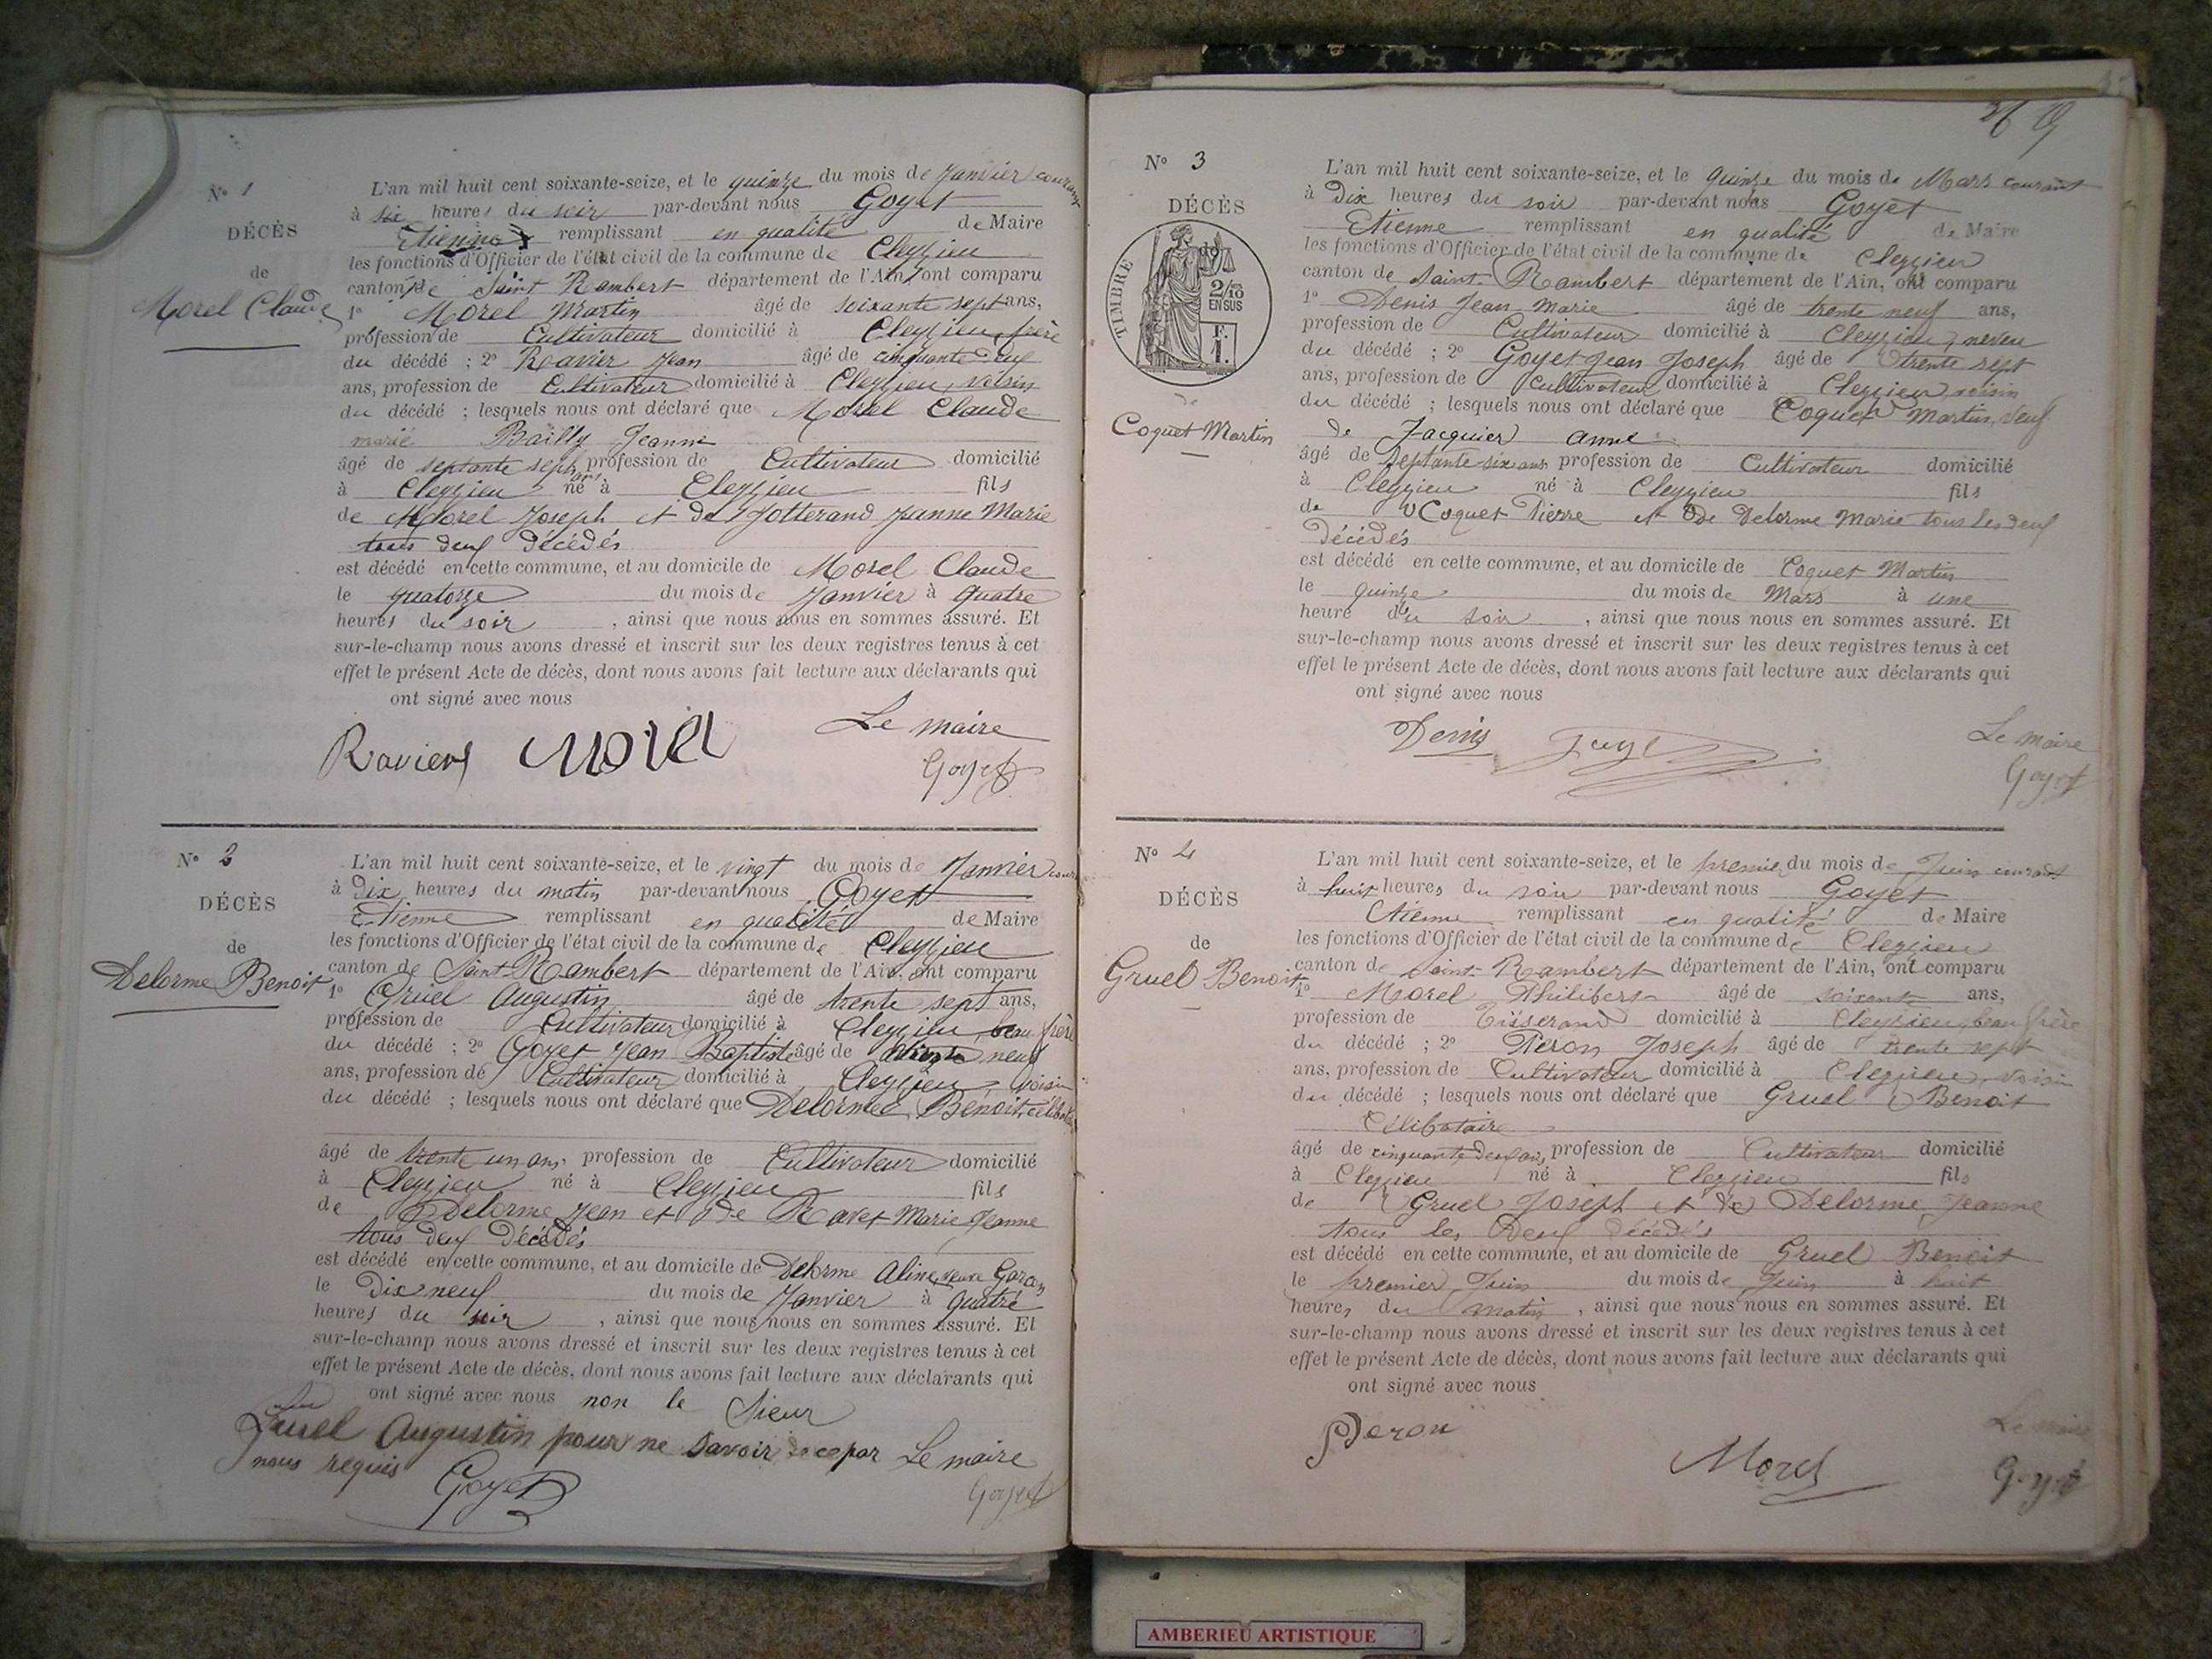 N° 1
DÉCÈS
de
Morel Claude
L'an mil huit cent soixante-seize, et le quinze du mois de Janvier courant
à six heures du soir par-devant nous Goyet
Etienne remplissant en qualité de Maire
les fonctions d'Officier de l'état civil de la commune de Cleyzieu
canton de Saint Rambert département de l'Ain, ont comparu
1° Morel Martin âgé de soixante sept ans,
profession de Cultivateur domicilié à Cleyzieu, frère
du décédé ; 2° Ravier Jean âgé de cinquante deux
ans, profession de Cultivateur domicilié à Cleyzieu, voisin
du décédé ; lesquels nous ont déclaré que Morel Claude
marié Bailly Jeanne
âgé de septante sept ans profession de Cultivateur domicilié
à Cleyzieu né à Cleyzieu fils
de Morel Joseph et de Jotterand Jeanne Marie
tous deux décédés
est décédé en cette commune, et au domicile de Morel Claude
le quatorze du mois de Janvier à quatre
heures du soir , ainsi que nous nous en sommes assuré. Et
sur-le-champ nous avons dressé et inscrit sur les deux registres tenus à cet
effet le présent Acte de décès, dont nous avons fait lecture aux déclarants qui
ont signé avec nous
Le maire
Ravier Morel
Goyet
N° 2
DÉCÈS
de
Delorme Benoit
L'an mil huit cent soixante-seize, et le vingt du mois de Janvier
à Dix heures du matin par-devant nous Goyet
Etienne remplissant en qualité de Maire
les fonctions d'Officier de l'état civil de la commune de Cleyzieu
canton de Saint-Rambert département de l'Ain, ont comparu
1° Gruel Augustin âgé de trente sept ans,
profession de Cultivateur domicilié à Cleyzieu, beau frère
du décédé ; 2° Goyet Jean Baptiste âgé de neuf
ans, profession de Cultivateur domicilié à Cleyzieu, voisin
du décédé ; lesquels nous ont déclaré que Delorme Benoit, célibataire
âgé de trente un ans profession de Cultivateur domicilié
à Cleyzieu né à Cleyzieu fils
de Delorme Jean et de Ravet Marie Jeanne
tous deux Décédés
est décédé en cette commune, et au domicile de Delorme Aline, veuve
le Dix neuf du mois de Janvier à quatre
heures du soir , ainsi que nous nous en sommes assuré. Et
sur-le-champ nous avons dressé et inscrit sur les deux registres tenus à cet
effet le présent Acte de décès, dont nous avons fait lecture aux déclarants qui
ont signé avec nous non le Sieur
Gruel Augustin pour ne savoir de ce par Le maire
nous requis Goyet Goyet
N° 3
DÉCÈS
TIMBRE
2/10
EN SUS
F.
1.
de
Coquet Martin
L'an mil huit cent soixante-seize, et le quinze du mois de Mars courant
à Dix heures du soir par-devant nous Goyet
Etienne remplissant en qualité de Maire
les fonctions d'Officier de l'état civil de la commune de Cleyzieu
canton de Saint-Rambert département de l'Ain, ont comparu
1° Denis Jean Marie âgé de trente neuf ans,
profession de Cultivateur domicilié à Cleyzieu, neveu
du décédé ; 2° Goyet Jean Joseph âgé de trente sept
ans, profession de Cultivateur domicilié à Cleyzieu, voisin
du décédé ; lesquels nous ont déclaré que Coquet Martin, Veuf
de Jacquier Anne
âgé de septante-six ans profession de Cultivateur domicilié
à Cleyzieu né à Cleyzieu fils
de Coquet Pierre et de Delorme Marie tous les deux
Décédés
est décédé en cette commune, et au domicile de Coquet Martin
le quinze du mois de Mars à une
heure du soir , ainsi que nous nous en sommes assuré. Et
sur-le-champ nous avons dressé et inscrit sur les deux registres tenus à cet
effet le présent Acte de décès, dont nous avons fait lecture aux déclarants qui
ont signé avec nous
Denis Le maire
Goyet
N° 4
DÉCÈS
de
Gruel Benoit
L'an mil huit cent soixante-seize, et le premier du mois de Juin courant
à huit heures du soir par-devant nous Goyet
Etienne remplissant en qualité de Maire
les fonctions d'Officier de l'état civil de la commune de Cleyzieu
canton de Saint-Rambert département de l'Ain, ont comparu
1° Morel Philibert âgé de soixante ans,
profession de Tisserand domicilié à Cleyzieu, beau frère
du décédé ; 2° Peron Joseph âgé de trente sept
ans, profession de Cultivateur domicilié à Cleyzieu, voisin
du décédé ; lesquels nous ont déclaré que Gruel Benoit
Célibataire
âgé de cinquante deux ans, profession de Cultivateur domicilié
à Cleyzieu né à Cleyzieu fils
de Gruel Joseph et de Delorme Jeanne
tous les Deux décédés
est décédé en cette commune, et au domicile de Gruel Benoit
le premier Juin du mois de Juin à huit
heures du matin , ainsi que nous nous en sommes assuré. Et
sur-le-champ nous avons dressé et inscrit sur les deux registres tenus à cet
effet le présent Acte de décès, dont nous avons fait lecture aux déclarants qui
ont signé avec nous
Peron Le maire
Morel Goyet
AMBERIEU ARTISTIQUE